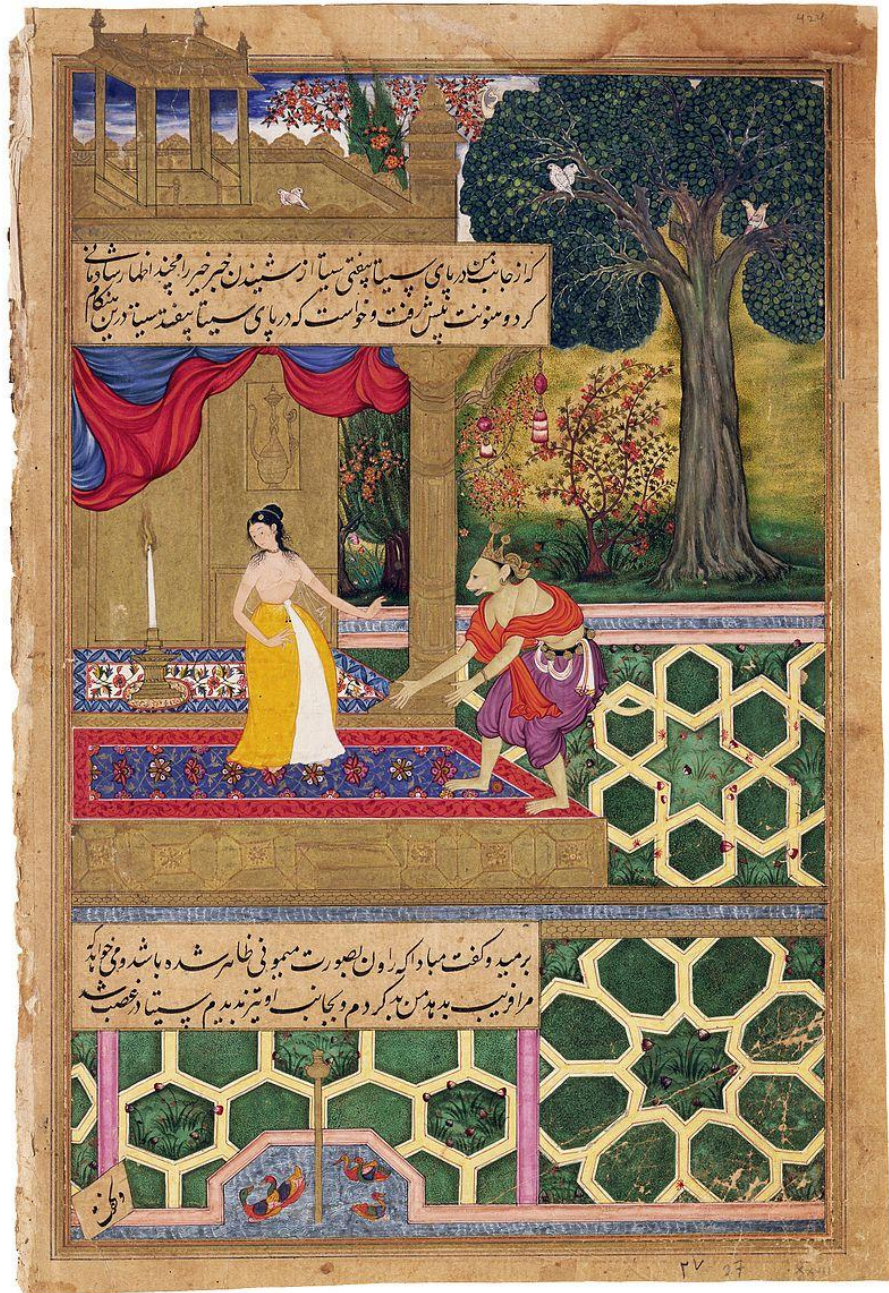 که از جانب من در پای سیتا بیفتی سیتا از شنیدن خبر خیر رامچند اظهار شادمانی
کرد و هنونت پیش رفت و خواست که در پای سیتا بیفتد سیتا درین هنگام
برمید و گفت مبادا که راون بصورت میمونی ظاهر شده باشد و می خواهد که
مرا فریب بدهد من بد کردم و بجانب او تیز ندیدم سیتا در غضب شد
و گفت
۲۷ 27